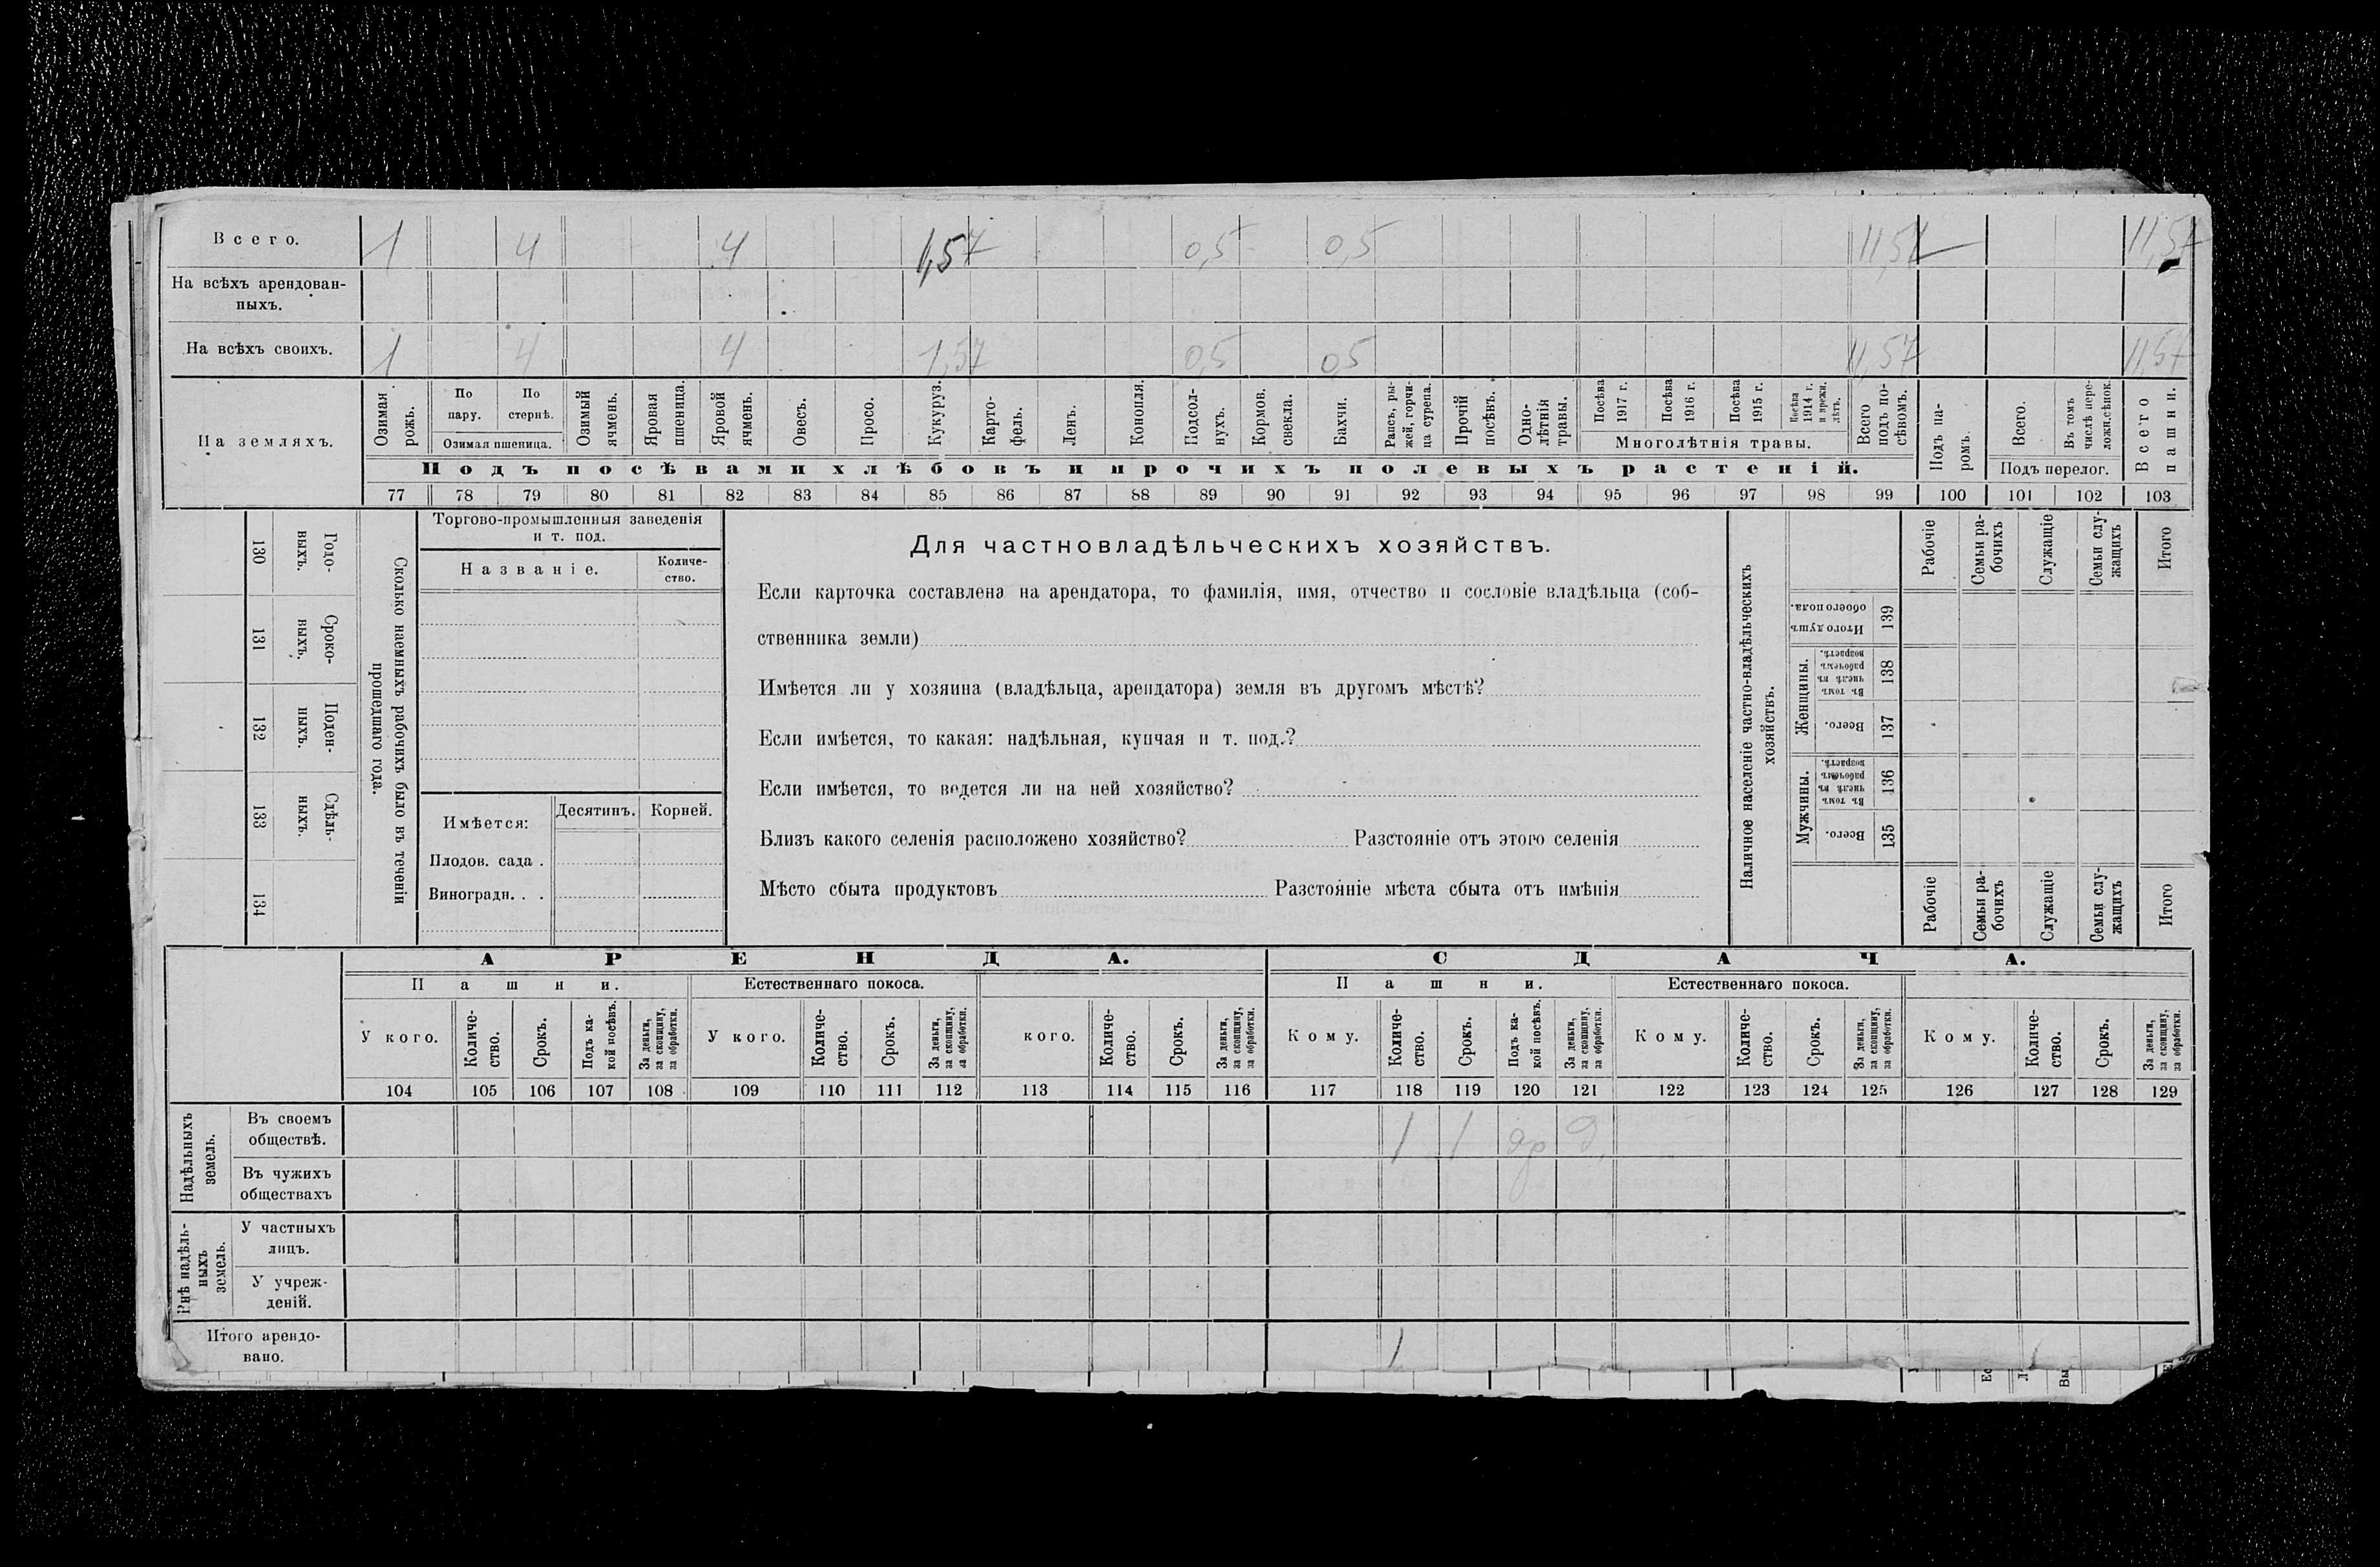 Всего. 1 4 4 1,57 0,5 0,5 11,57 11,57
На всѣхъ арендован-
ныхъ.
На всѣхъ своихъ. 1 4 4 1,57 0,5 0,5 11,57 11,57
На земляхъ.
Озимая рожь.
По пару.
По стернѣ.
Озимая пшеница.
Озимый ячмень.
Яровая пшеница.
Яровой ячмень.
Овесъ.
Просо.
Кукуруз.
Карто-
фель.
Ленъ.
Конопля.
Подсол-
нухъ.
Кормов.
свекла.
Бахчи.
Рапсъ, ры-
жей, горчи-
ца сурепа.
Прочій
посѣвъ.
Одно-
лѣтнія
травы.
Посѣва
1917 г.
Посѣва
1916 г.
Посѣва
1915 г.
Посѣва
1914 г.
и прежн.
лѣтъ.
Многолѣтнія травы.
Всего
подъ по-
сѣвомъ.
Подъ па-
ромъ.
Всего.
Въ томъ
числѣ пере-
ложн.сѣнок.
Подъ перелог.
Всего
пашни.
Подъ посѣвами хлѣбовъ и прочихъ полевыхъ растеній.
77 78 79 80 81 82 83 84 85 86 87 88 89 90 91 92 93 94 95 96 97 98 99 100 101 102 103
Сколько наемныхъ рабочихъ было въ теченіи
прошедшаго года.
Годо-
выхъ.
130
Сроко-
выхъ.
131
Поден-
ныхъ.
132
Сдѣль-
ныхъ.
133
134
Торгово-промышленныя заведенія
и т. под.
Названіе.
Количе-
ство.
Имѣется:
Десятинъ. Корней.
Плодов. сада .
Виноградн. . .
Для частновладѣльческихъ хозяйствъ.
Если карточка составлена на арендатора, то фамилія, имя, отчество и сословіе владѣльца (соб-
ственника земли)
Имѣется ли у хозяина (владѣльца, арендатора) земля въ другомъ мѣстѣ?
Если имѣется, то какая: надѣльная, купчая и т. под.?
Если имѣется, то ведется ли на ней хозяйство?
Близъ какого селенія расположено хозяйство? Разстояніе отъ этого селенія
Мѣсто сбыта продуктовъ Разстояніе мѣста сбыта отъ имѣнія
Наличное населеніе частно-владѣльческихъ
хозяйствъ.
Рабочіе
Семьи ра-
бочихъ
Служащіе
Семьи слу-
жащихъ
Итого
Итого душъ
обоего пола.
139
Женщины.
Въ томъ
числѣ въ
рабочемъ
возрастѣ.
138
Всего.
137
Мужчины.
Въ томъ
числѣ въ
рабочемъ
возрастѣ.
136
Всего.
135
Рабочіе
Семьи ра-
бочихъ
Служащіе
Семьи слу-
жащихъ
Итого
АРЕНДА. СДАЧА.
Пашни. Естественнаго покоса. Пашни. Естественнаго покоса.
У кого.
Количе-
ство.
Срокъ.
Подъ ка-
кой посѣвъ.
За деньги,
за скопщину,
за обработки.
У кого.
Количе-
ство.
Срокъ.
За деньги,
за скопщину,
за обработки.
кого.
Количе-
ство.
Срокъ.
За деньги,
за скопщину,
за обработки.
Кому.
Количе-
ство.
Срокъ.
Подъ ка-
кой посѣвъ.
За деньги,
за скопщину,
за обработки.
Кому.
Количе-
ство.
Срокъ.
За деньги,
за скопщину,
за обработки.
Кому.
Количе-
ство.
Срокъ.
За деньги,
за скопщину,
за обработки.
104 105 106 107 108 109 110 111 112 113 114 115 116 117 118 119 120 121 122 123 124 125 126 127 128 129
Надѣльныхъ
земель.
Въ своемъ
обществѣ.
1 1 яр д.
Въ чужихъ
обществахъ
Внѣ надѣль-
ныхъ
земель.
У частныхъ
лицъ.
У учреж-
деній.
Итого арендо-
вано.
1